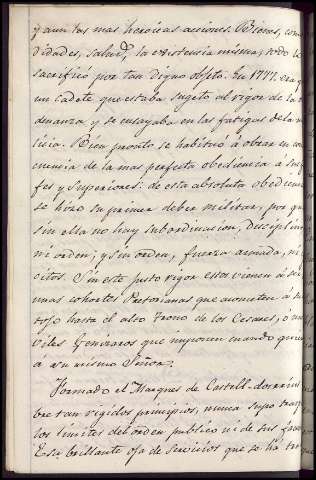 y aun las mas heroicas acciones. Bienes, como
didades, salud, la existencia misma, todo lo
sacrificó por tan digno objeto. En 1777. era ya
un cadete que estaba sujeto al rigor de la or
denanza y se ensayaba en las fatigas de la mi
licia. Bien pronto se habituó á obrar en con
cuencia de la mas perfecta obediencia a sus
fes y superiores: de esta absoluta obedienc
se hizo su primer deber militar, por qu
sin ella no hay subordinacion, disciplin
ni orden; y sin orden, fuerza armada, ni
citos. Sin este justo rigor estos vienen á ser
unas cohortes Pretorianas que acometen á su
tojo hasta el alto trono de los Cesares, ó un
viles Genizaros que imponen cuando quier
á su mismo Señor.
Formado el Marques de Castell-dosrrius
bre tan regidos principios, nunca supo trasp
los limites del orden publico ni de sus
Esta brillante oja de servicios que se ha tra